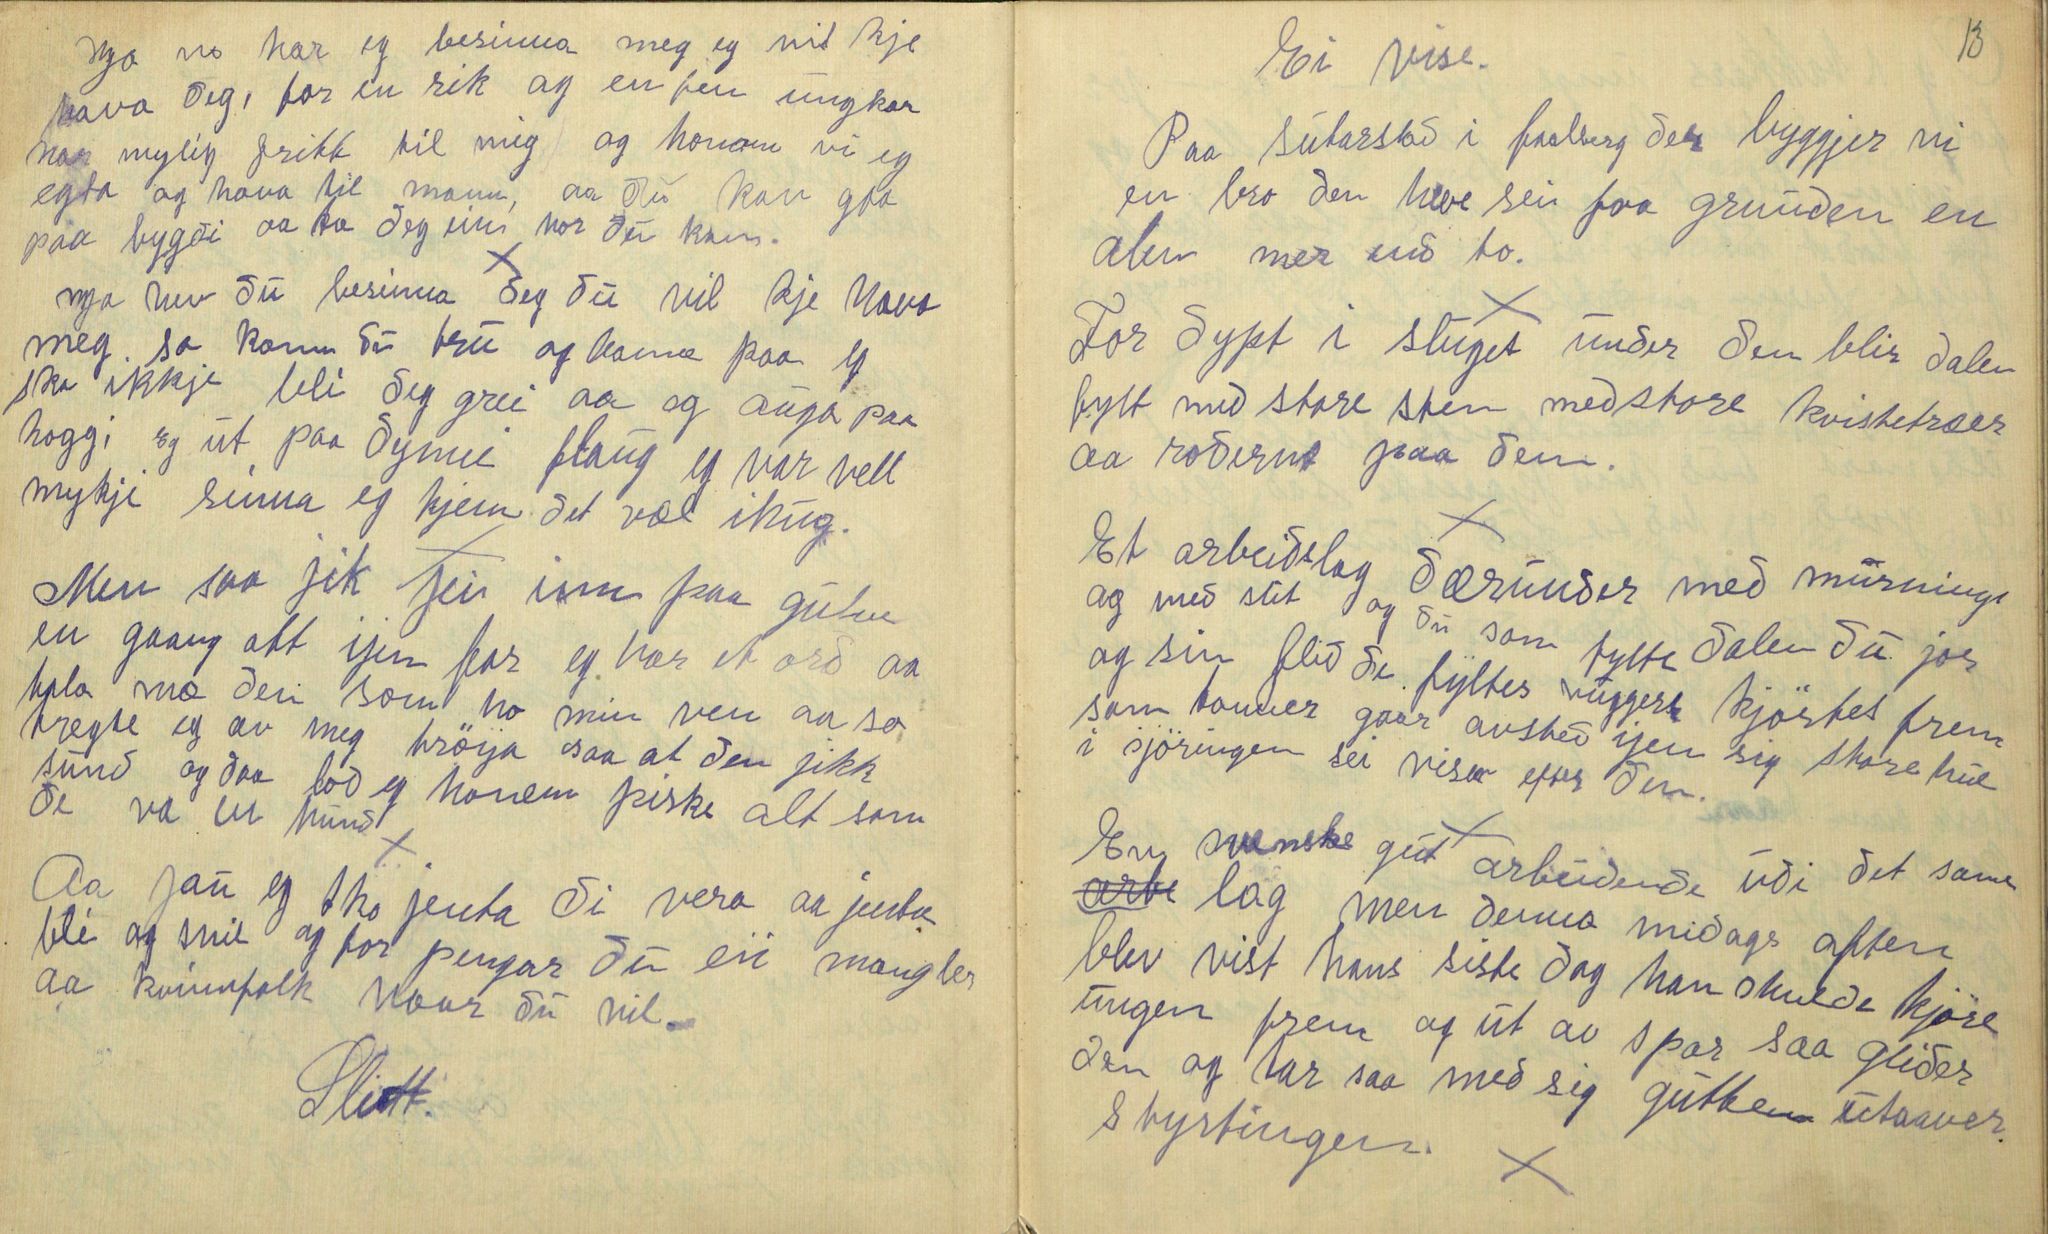 Nja no har eg besinna meg eg vil kje
hava deg, for en rik og en fen ungkar
har mylig fritt til mig og honom vi eg
egta og hava til mann, aa du kan gaa
paa bygdi aa ta deg ein hor du kan.
X
Nja hev du besinna deg du vil kje hava
meg. so kann du tru og vaana paa eg
ska ikkje bli deg grei aa og auga paa
hoggi eg ut paa dynne flaug eg var vell
mykji sinna eg kjem det væl ihug.
Men saa jik jei inn paa gulve
en gaang att ijen for eg har et ord aa
tala mæ den som ho min ven aa so
tregte eg av meg tröija saa at den jikk
sund og daa lod eg honem piske alt som
de va en hund
X
Aa fau eg sko jenta di vera aa jenta
bli og snil og for pengar du eii mangler
aa kvinnfolk naar du vil.
Slutt.
13
Ei vise.
Paa sutarstad i faaberg der byggjer vi
en bro den heve sei fraa grunden en
alen mer end to.
X
For dypt i stuget under den blir dalen
fylt med store sten med store kvistetræer
aa rødernt paa dem.
X
Et arbeidslag dærunder med murninge
og med slit og du som fylte dalen du jor
og sin flid de fyltes vuggere kjörtes frem
som tomer gaar avsted ijen sig store hul
i sjöringen sei viser efter dem.
X
En svenske gut arbeidende udi det same
lag men denna midags aften
blev vist hans siste dag han skulde kjöre
ungen frem og ut av spor saa glider
den og tar saa med sig gutten utaaver
styrtingen.
X